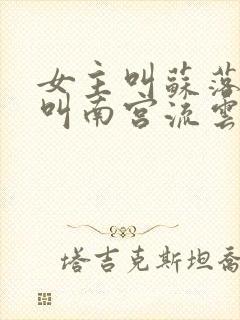 女主叫蘇落
叫南宮流雲
塔吉克斯坦喬